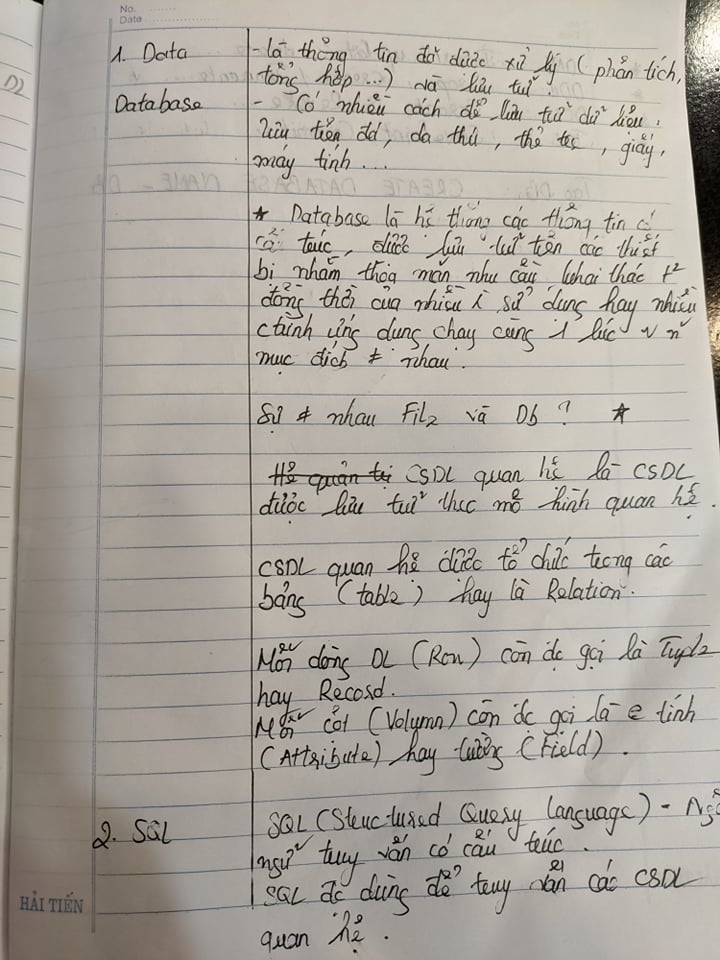 No.
Date
1. Data - là thông tin đã được xử lý (phân tích,
tổng hợp...) và lưu trữ.
Database - Có nhiều cách để lưu trữ dữ liệu.
lưu trên đá, da thú, thẻ tre, giấy,
máy tính...
* Database là hệ thống các thông tin có
cấu trúc, được lưu trữ trên các thiết
bị nhằm thỏa mãn nhu cầu khai thác t²
đồng thời của nhiều i sử dụng hay nhiều
ctrình ứng dụng chạy cùng 1 lúc v n~
mục đích ≠ nhau.
Sự ≠ nhau File và Db ? *
Hệ quản trị CSDL quan hệ là CSDL
được lưu trữ theo mô hình quan hệ.
CSDL quan hệ được tổ chức trong các
bảng (table) hay là Relation.
Mỗi dòng DL (Row) còn đc gọi là Tuple
hay Record.
Mỗi cột (Volymn) còn đc gọi là e tính
(Attribute) hay trường (Field).
2. SQL SQL (Structured Query language) - Ngô
ngữ truy vấn có cấu trúc.
SQL đc dùng để truy vấn các CSDL
quan hệ.
HẢI TIẾN